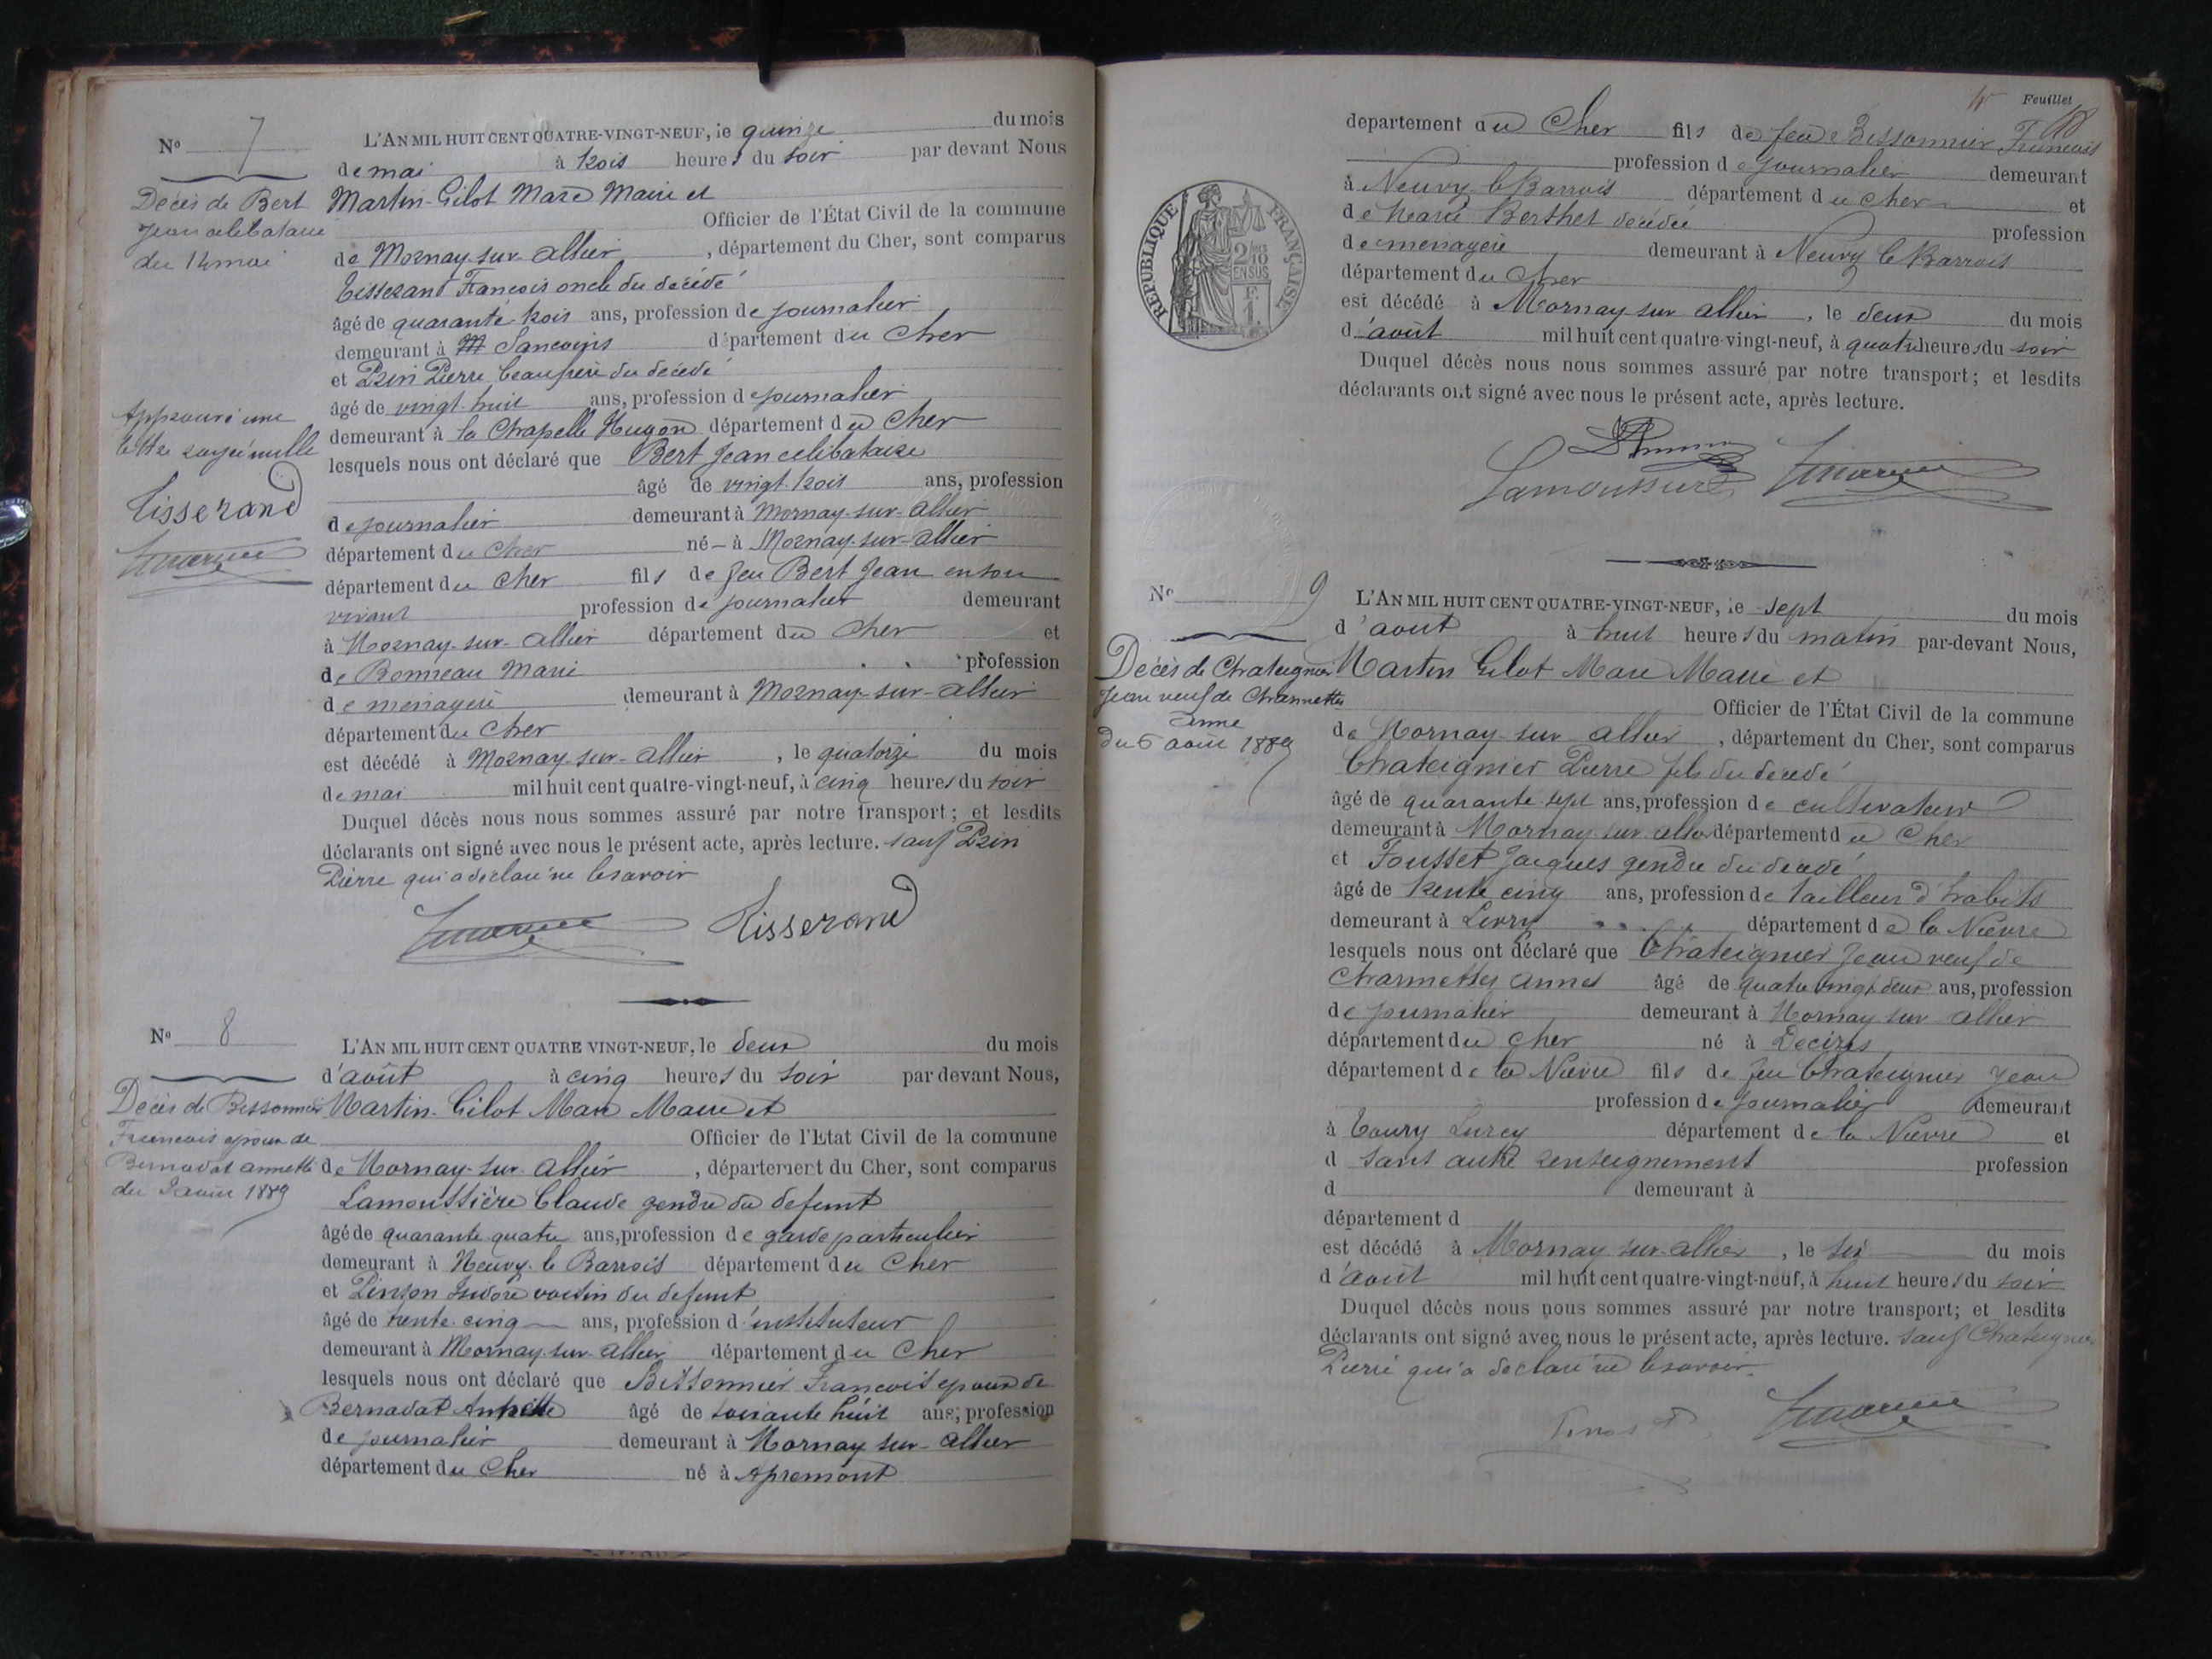 No 7
Décès de Bert
Jean celibataire
du 14 mai
Approuvé une
lettre rayée nulle
Tisserand
L'AN MIL HUIT CENT QUATRE-VINGT-NEUF, le quinze du mois
de mai à trois heures du soir par devant Nous
Martin-Gilot Marc Maire et
Officier de l'État Civil de la commune
de Mornay-sur-Allier, département du Cher, sont comparus
Tisserand François oncle du décédé
âgé de quarante trois ans, profession de journalier
demeurant à Sancoins département du Cher
et Prin Pierre beaufrère du décédé
âgé de vingt-huit ans, profession de journalier
demeurant à la Chapelle Hugon département du Cher
lesquels nous ont déclaré que Bert Jean celibataire
âgé de vingt-trois ans, profession
de journalier demeurant à Mornay-sur-Allier
département du Cher né à Mornay-sur-Allier
département du Cher fils de feu Bert Jean en son
vivant profession de journalier demeurant
à Mornay-sur-Allier département du Cher et
de Bonneau Marie profession
de menagère demeurant à Mornay-sur-Allier
département du Cher
est décédé à Mornay-sur-Allier, le quatorze du mois
de mai mil huit cent quatre-vingt-neuf, à cinq heures du soir
Duquel décès nous nous sommes assuré par notre transport; et lesdits
déclarants ont signé avec nous le présent acte, après lecture. sauf Prin
Pierre qui a déclaré ne le savoir
Tisserand
No 8
Décès de Bissonnier
Francois epoux de
Bernadat annette
du 2 aout 1889
L'AN MIL HUIT CENT QUATRE VINGT-NEUF, le deux du mois
d'août à cinq heures du soir par devant Nous,
Martin-Gilot Marc Maire et
Officier de l'Etat Civil de la commune
de Mornay-sur-Allier, département du Cher, sont comparus
Lamoussière Claude gendre du defunt
âgé de quarante-quatre ans, profession de garde particulier
demeurant à Neuvy-le Barrois département du Cher
et Pinson Isidore voisin du defunt
âgé de trente-cinq ans, profession d'instituteur
demeurant à Mornay-sur-Allier département du Cher
lesquels nous ont déclaré que Bissonnier Francois epoux de
Bernadat Annette âgé de soixante huit ans, profession
de journalier demeurant à Mornay sur-Allier
département du Cher né à Apremont
Feuillet
18
departement du Cher fils de feu Bissonnier Francois
profession de journalier demeurant
à Neuvy-le Barrois département du Cher et
de Marie Berthet décédée profession
de menagère demeurant à Neuvy le Barrois
département du Cher
est décédé à Mornay sur allier, le deux du mois
d'août mil huit cent quatre-vingt-neuf, à quatre heures du soir
Duquel décès nous nous sommes assuré par notre transport; et lesdits
déclarants ont signé avec nous le présent acte, après lecture.
RÉPUBLIQUE FRANÇAISE
2/10 EN SUS
Lamoussière
No 9
Décès de Chateignier
Jean veuf de Charmettes
anne
du 6 aout 1889
L'AN MIL HUIT CENT QUATRE-VINGT-NEUF, le sept du mois
d'aout à huit heures du matin par-devant Nous,
Martin Gilot Marc Maire et
Officier de l'État Civil de la commune
de Mornay-sur Allier, département du Cher, sont comparus
Chateignier Pierre fils du décédé
âgé de quarante-sept ans, profession de cultivateur
demeurant à Mornay-sur-allier département du Cher
et Fousset Jacques gendre du décédé
âgé de trente cinq ans, profession de tailleur d'habits
demeurant à Livry département de la Nièvre
lesquels nous ont déclaré que Chateignier Jean veuf de
Charmettes Anne âgé de quatre vingt deux ans, profession
de journalier demeurant à Mornay sur Allier
département du Cher né à Decizes
département de la Nièvre fils de feu Chateignier Jean
profession de journalier demeurant
à Toury Lurcy département de la Nièvre et
d sans autre renseignement profession
d demeurant à
département d
est décédé à Mornay sur-allier, le six du mois
d'août mil huit cent quatre-vingt-neuf, à huit heures du soir
Duquel décès nous nous sommes assuré par notre transport; et lesdits
déclarants ont signé avec nous le présent acte, après lecture. sauf Chateignier
Pierre qui a déclaré ne le savoir.